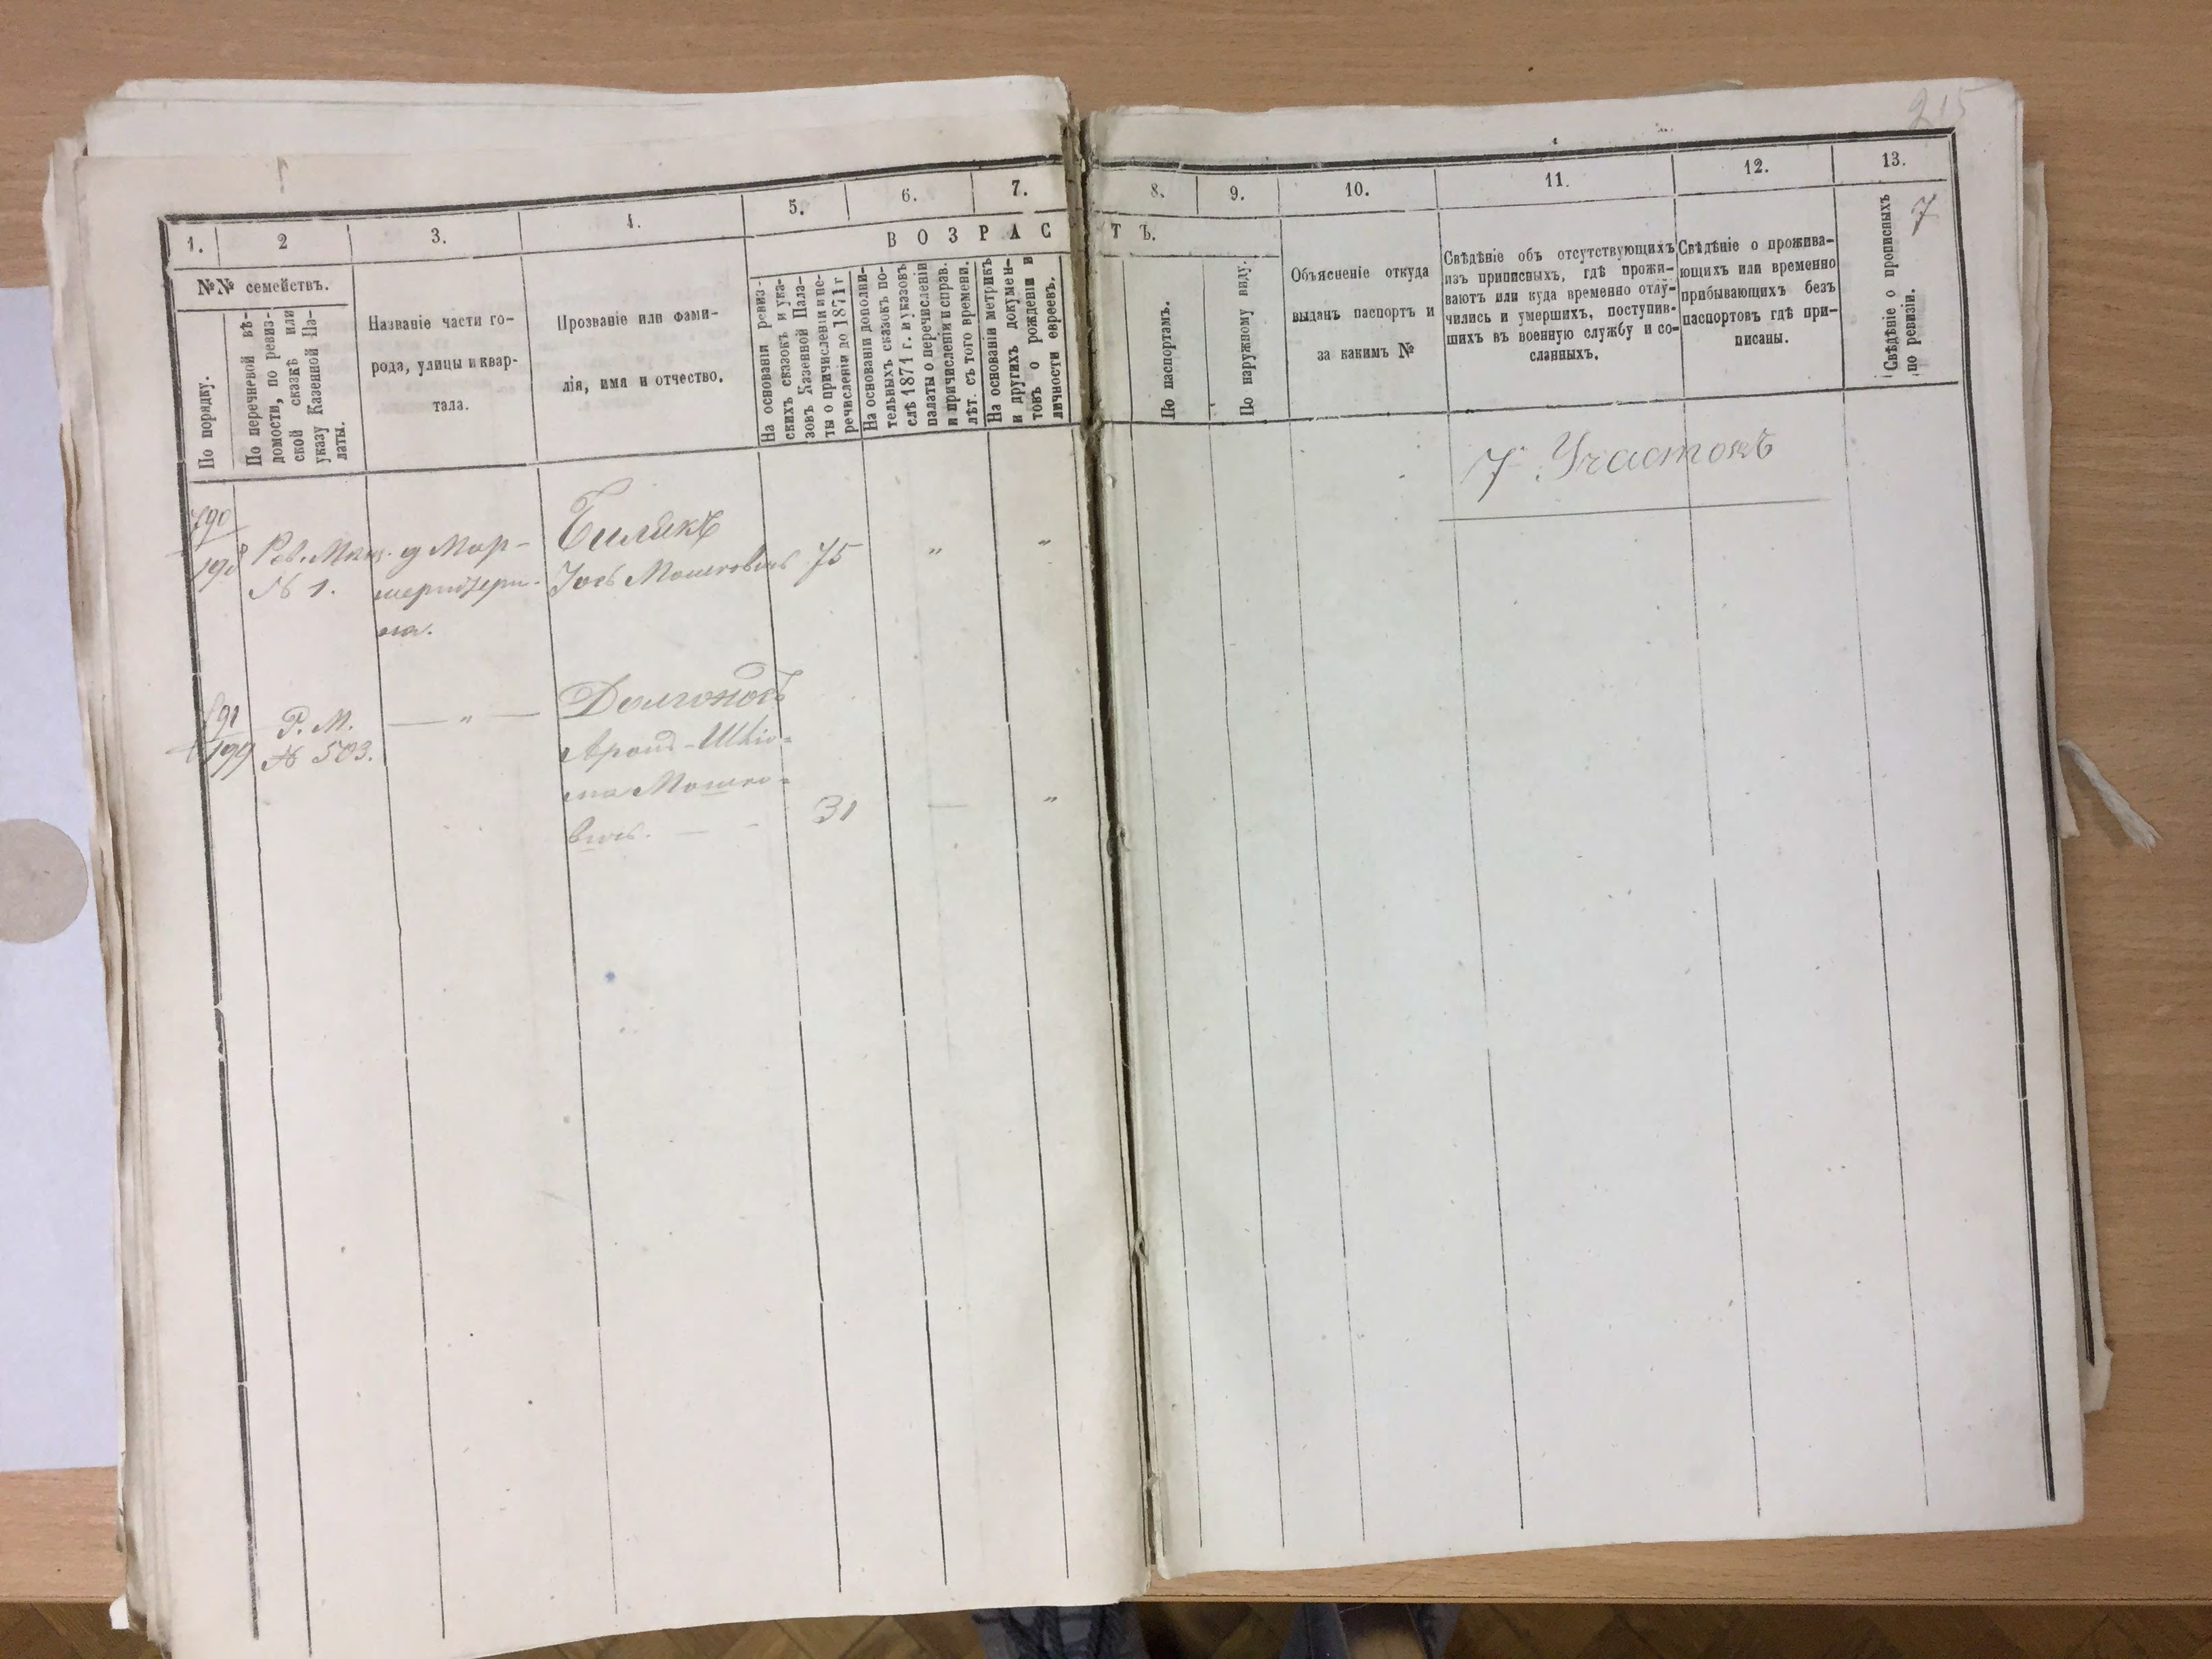 215
1.
2
3.
4.
5.
6.
7.
8.
9.
10.
11.
12.
13.
В О З Р А С Т Ъ.
№№ семействъ.
По порядку.
По перечневой вѣ-
домости, по ревиз-
ской сказкѣ или
указу Казенной Па-
латы.
Названіе части го-
рода, улицы и квар-
тала.
Прозваніе или фами-
лія, имя и отчество.
На основаніи ревиз-
скихъ сказокъ и ука-
зовъ Казенной Пала-
ты о причисленіи и пе-
речисленіи до 1871 г
На основаніи дополни-
тельныхъ сказокъ по-
слѣ 1871 г. и указовъ
палаты о перечисленіи
и причисленіи и справ.
лѣт. съ того времени.
На основаніи метрикъ
и другихъ докумен-
товъ о рожденіи и
личности евреевъ.
По паспортамъ.
По наружному виду.
Объясненіе откуда
выданъ паспортъ и
за какимъ №
Свѣдѣніе объ отсутствующихъ
изъ приписныхъ, гдѣ прожи-
ваютъ или куда временно отлу-
чились и умершихъ, поступив-
шихъ въ военную службу и со-
сланныхъ.
Свѣдѣніе о прожива-
ющихъ или временно
прибывающихъ безъ
паспортовъ гдѣ при-
писаны.
Свѣдѣніе о прописныхъ
по ревизіи.
7
7 Участокъ
190
198
№ 1.
Билякъ
Іосъ Мошковичъ 75 " "
191
199
Р. М.
№ 503.
— " —
Долгоносъ
Аронъ-Шлio-
ма Мошко-
вичъ. — - 31 — "